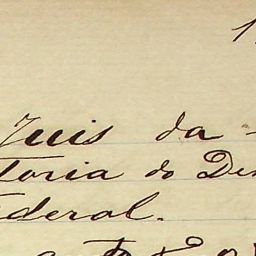 Juis da
toria do De
ederal.